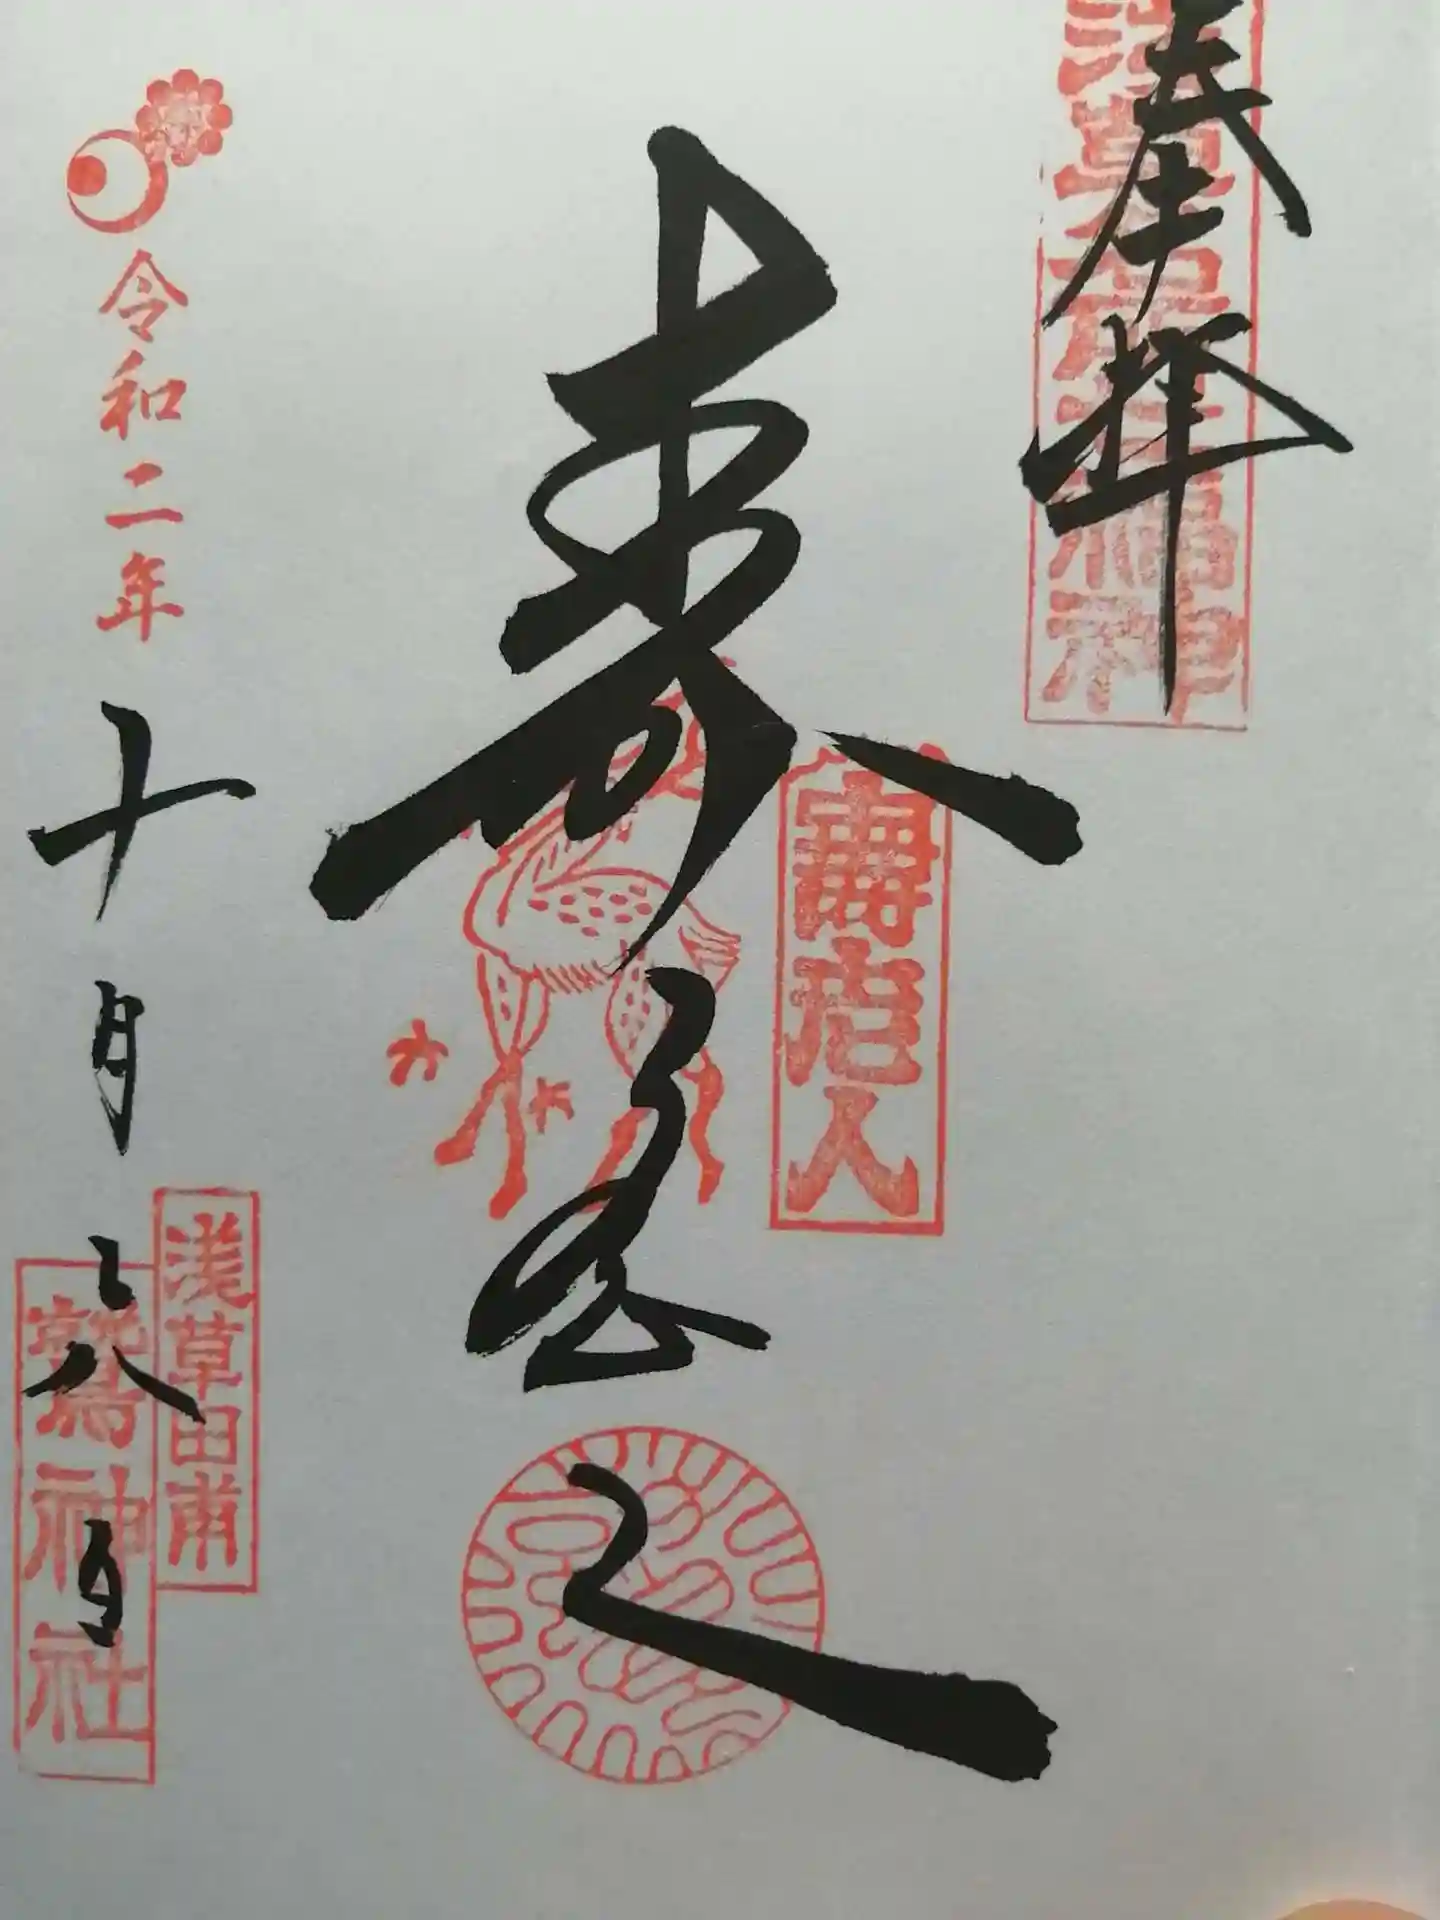 奉拝
浅草名所七福神
寿老人
寿老人
令和二年
十月二八日
浅草田甫
鷲神社